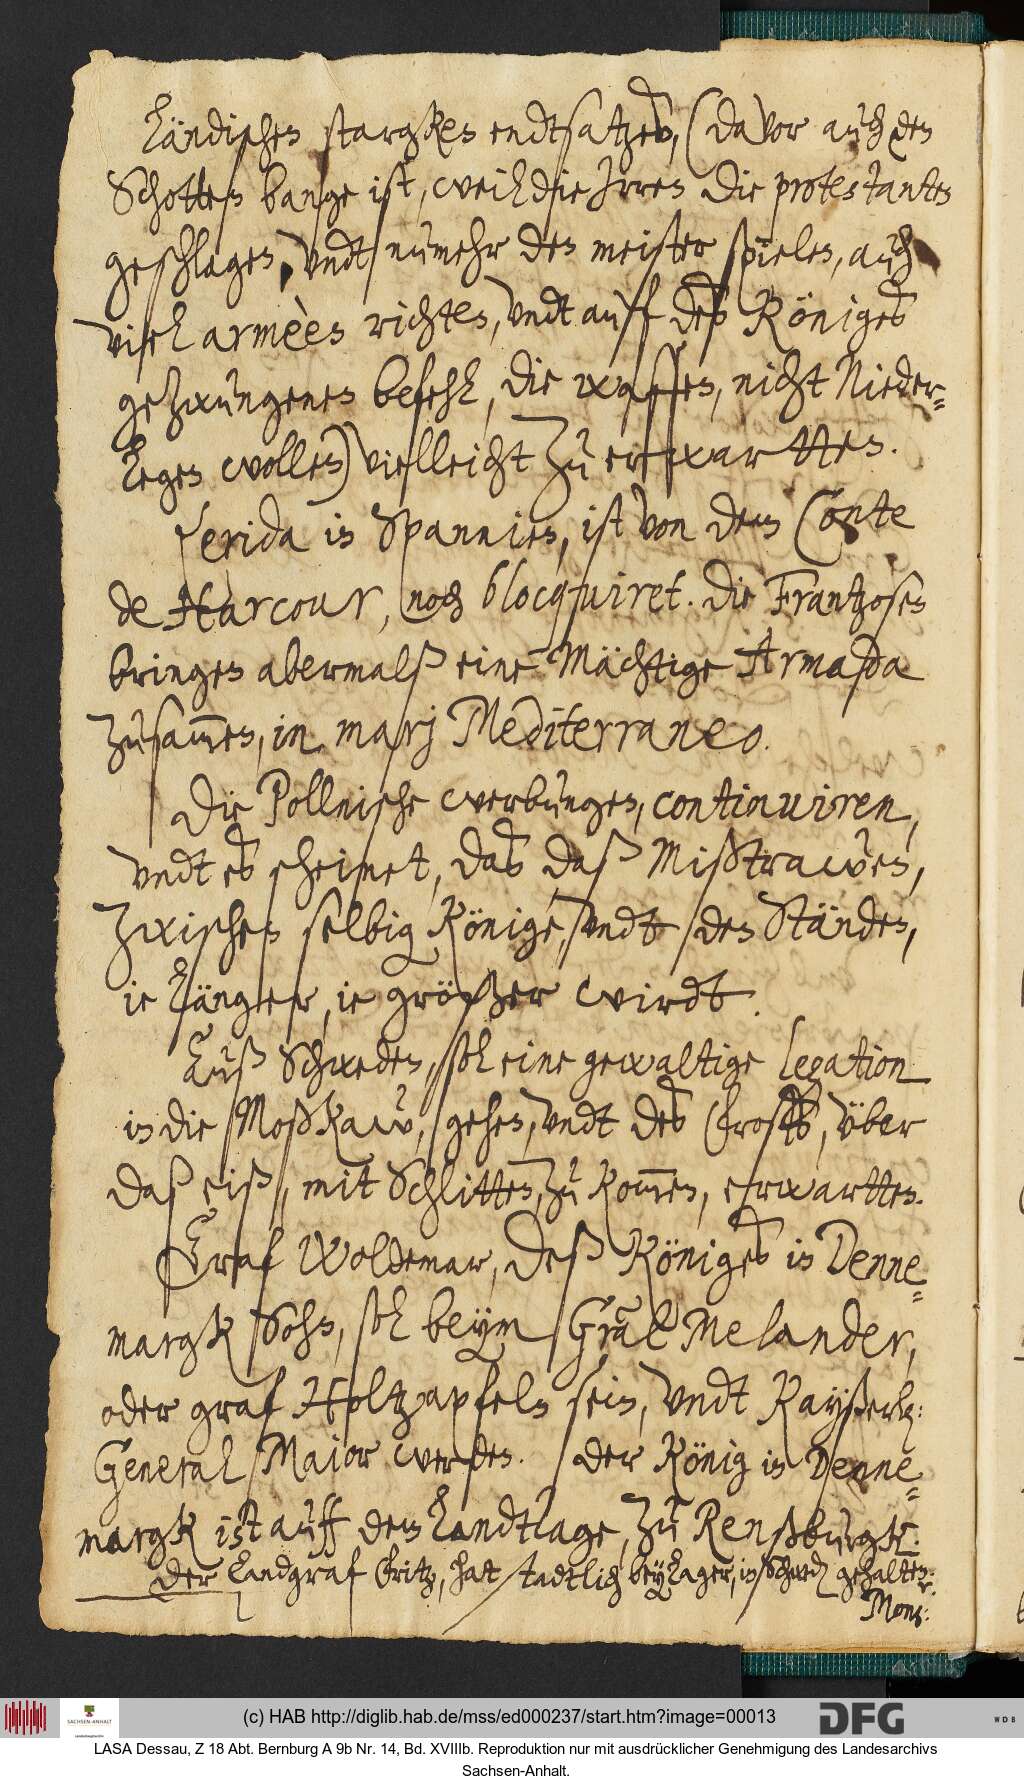 Ländischen stargken endtsatzes, (davor auch den
Schotten bange ist, weil die Irren die protestanten
geschlagen, vndt nunmehr den meister spielen, auch
viel armèen richten, vndt auff des Königes
gezwungenen befehl, die waffen, nicht Nieder-
legen wollen) vielleicht zu erwartten.
Lerida in Spannien, ist von dem Conte
de Harcour, noch blocquiret. Die Frantzosen
bringen abermalß eine Mächtige Armada
zusammen, in marj Mediterraneo.
Die Pollnische werbungen, continuiren,
vndt es scheinet, das daß Mißtrawen,
zwischen selbig Könige, vndt den Ständen,
ie länger, ie größer wirdt.
Auß Schweden, soll eine gewaltige legation
in die Moßkaw, gehen, vndt des Frosts, über
daß eiß, mit Schlitten, zu kommen, erwartten.
Graf Woldemar, deß Königes in Denne-
margk Sohn, soll beym Gral Melander,
oder graf Holtzapfeln sein, vndt Kayßerl:
General Maior werden. Der König in Denne-
margk ist auff dem Landtage, zu Renßburgk.
Der Landgraf Fritz, hat stadtlich beylager, in Schwed gehalten.
Mons:
(c) HAB http://diglib.hab.de/mss/ed000237/start.htm?image=00013
SACHSEN-ANHALT
DFG
WDB
LASA Dessau, Z 18 Abt. Bernburg A 9b Nr. 14, Bd. XVIIIb. Reproduktion nur mit ausdrücklicher Genehmigung des Landesarchivs
Sachsen-Anhalt.